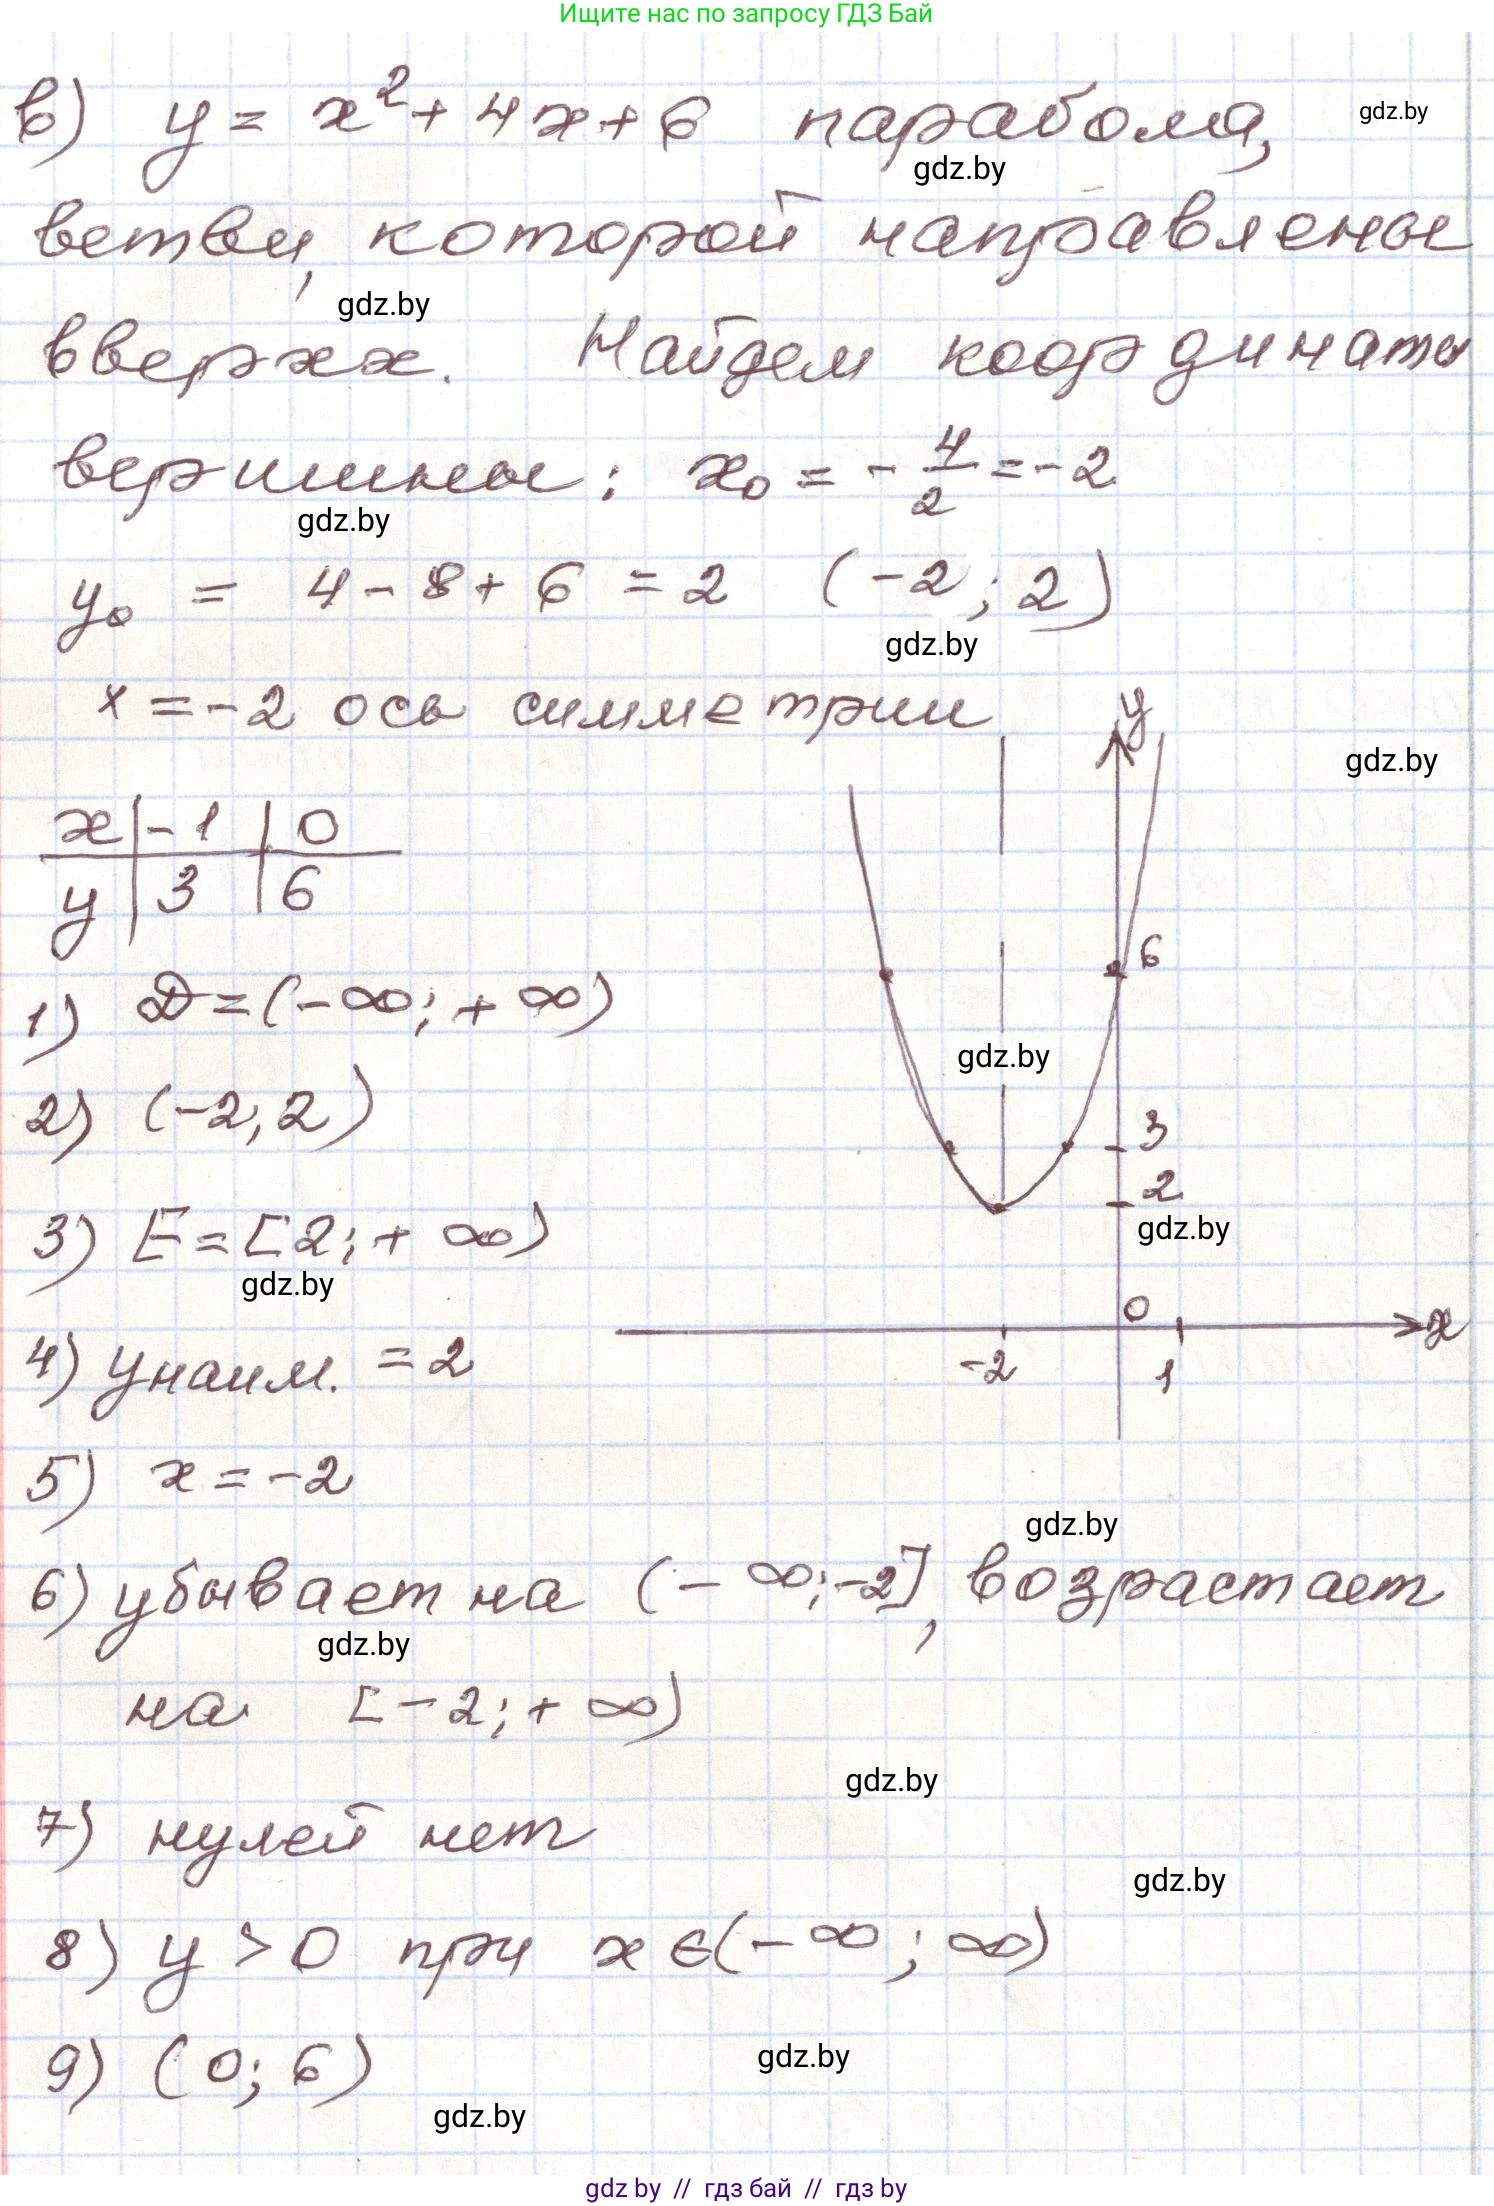 Ищите нас по запросу ГДЗ Бай
в) y = x² + 4x + 6 парабола,
gdz.by
gdz.by
ветви, которой направлены
gdz.by
вверхх. Найдем координаты
вершины: x₀ = -4/2 = -2
gdz.by
y₀ = 4 - 8 + 6 = 2 (-2; 2)
gdz.by
x = -2 ось симметрии
y
gdz.by
x | -1 | 0
y | 3 | 6
6
1) D = (-∞; +∞)
gdz.by
2) (-2; 2)
3
2
gdz.by
3) E = [2; +∞)
gdz.by
0
x
-2 1
4) yнаим. = 2
5) x = -2
gdz.by
6) убывает на (-∞; -2], возрастает
gdz.by
на [-2; +∞)
gdz.by
7) нулей нет
gdz.by
8) y > 0 при x ∈ (-∞; ∞)
9) (0; 6)
gdz.by
gdz.by
gdz by // гдз бай // гдз by